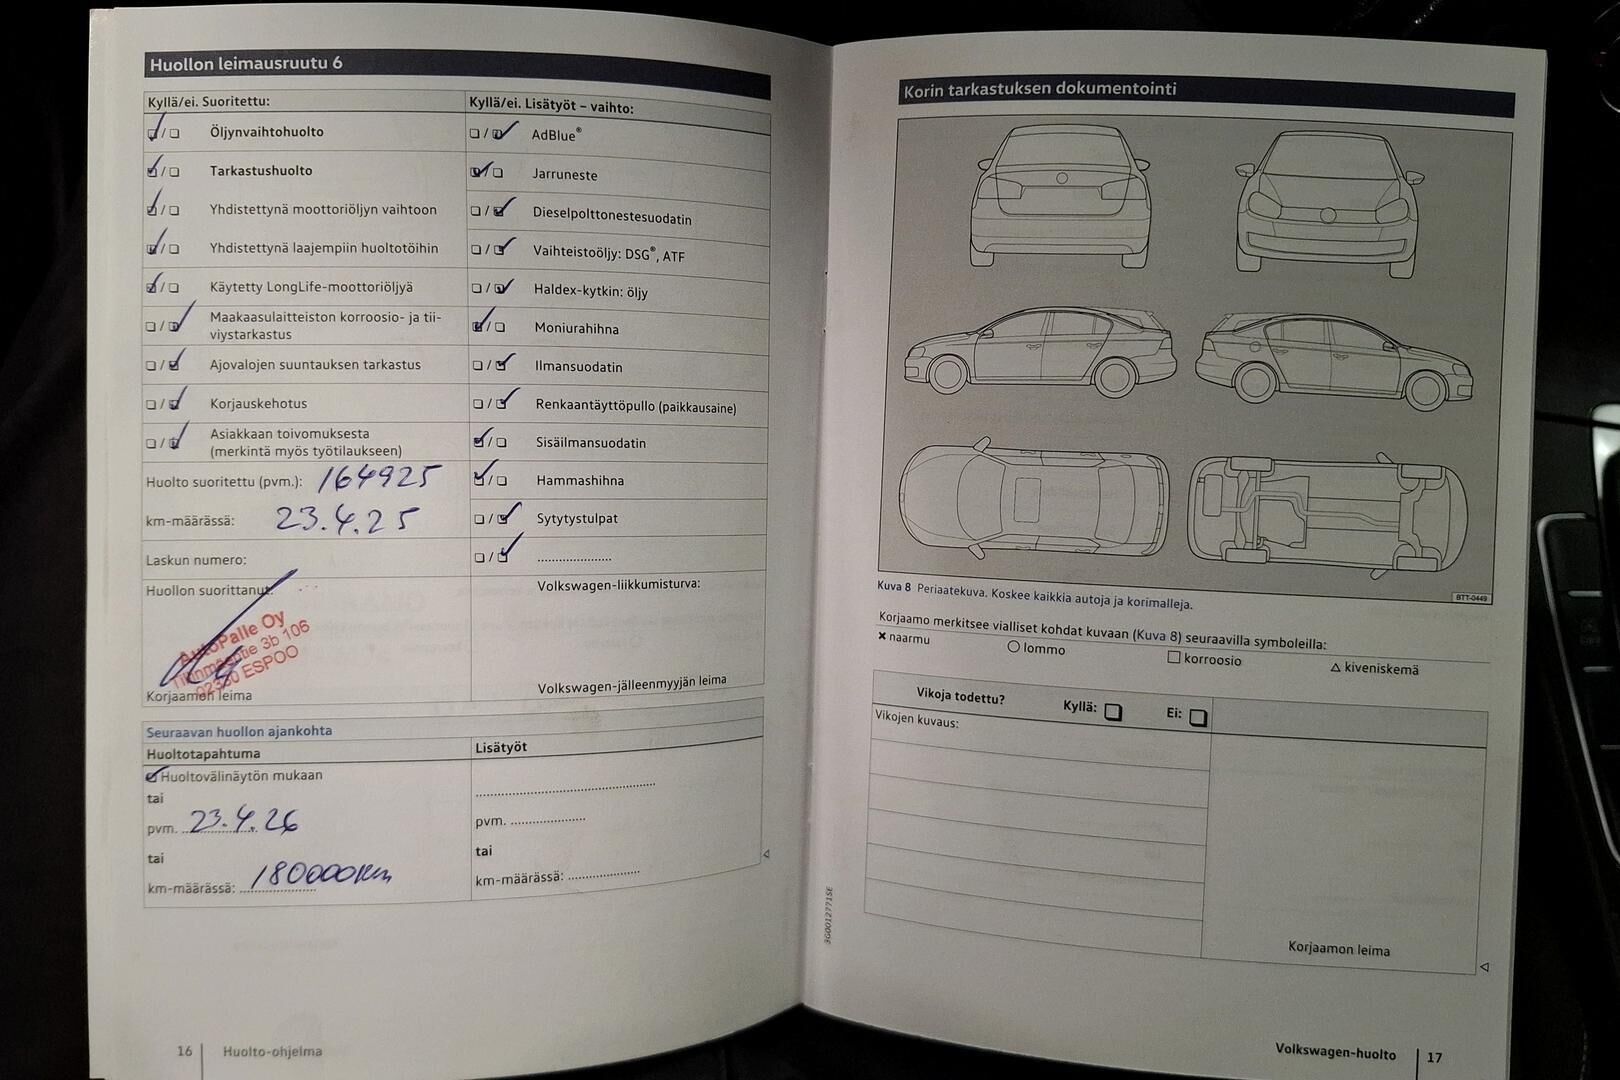 Huollon leimausruutu 6
Kyllä/ei. Suoritettu:
☑/☐ Öljynvaihtohuolto
☑/☐ Tarkastushuolto
☑/☐ Yhdistettynä moottoriöljyn vaihtoon
☑/☐ Yhdistettynä laajempiin huoltotöihin
☑/☐ Käytetty LongLife-moottoriöljyä
☐/☑ Maakaasulaitteiston korroosio- ja tii-
viystarkastus
☐/☑ Ajovalojen suuntauksen tarkastus
☐/☑ Korjauskehotus
☐/☑ Asiakkaan toivomuksesta
(merkintä myös työtilaukseen)
Huolto suoritettu (pvm.): 164925
km-määrässä: 23.4.25
Laskun numero:
Huollon suorittanut:
AutoPalle Oy
3b 106
02330 ESPOO
Korjaamon leima
Kyllä/ei. Lisätyöt – vaihto:
☐/☑ AdBlue®
☑/☐ Jarruneste
☐/☑ Dieselpolttonestesuodatin
☐/☑ Vaihteistoöljy: DSG®, ATF
☐/☑ Haldex-kytkin: öljy
☑/☐ Moniurahihna
☐/☑ Ilmansuodatin
☐/☑ Renkaantäyttöpullo (paikkausaine)
☑/☐ Sisäilmansuodatin
☑/☐ Hammashihna
☐/☑ Sytytystulpat
☐/☑ ....................
Volkswagen-liikkumisturva:
Volkswagen-jälleenmyyjän leima
Seuraavan huollon ajankohta
Huoltotapahtuma
☑ Huoltovälinäytön mukaan
tai
pvm. 23.4.26
tai
km-määrässä: 180000km
Lisätyöt
..................................................
pvm. ....................
tai
km-määrässä: ....................
16 Huolto-ohjelma
Korin tarkastuksen dokumentointi
BTT-0449
Kuva 8 Periaatekuva. Koskee kaikkia autoja ja korimalleja.
Korjaamo merkitsee vialliset kohdat kuvaan (Kuva 8) seuraavilla symboleilla:
× naarmu ○ lommo □ korroosio △ kiveniskemä
Vikoja todettu? Kyllä: ☐ Ei: ☐
Vikojen kuvaus:
Korjaamon leima
3G0012771SE
Volkswagen-huolto 17